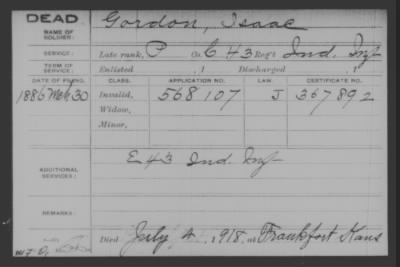 DEAD
NAME OF SOLDIER: Gordon, Isaac
SERVICE: Late rank, P Co. C 43 Reg't Ind. Inf
TERM OF SERVICE: Enlisted , 1 Discharged , 1
DATE OF FILING. CLASS. APPLICATION NO. LAW. CERTIFICATE NO.
1886 Mch 30 Invalid, 568107 J 367892
Widow,
Minor,
ADDITIONAL SERVICES: E 43 Ind. Inf
REMARKS:
Died July 4, 1918, at Frankfort Kans